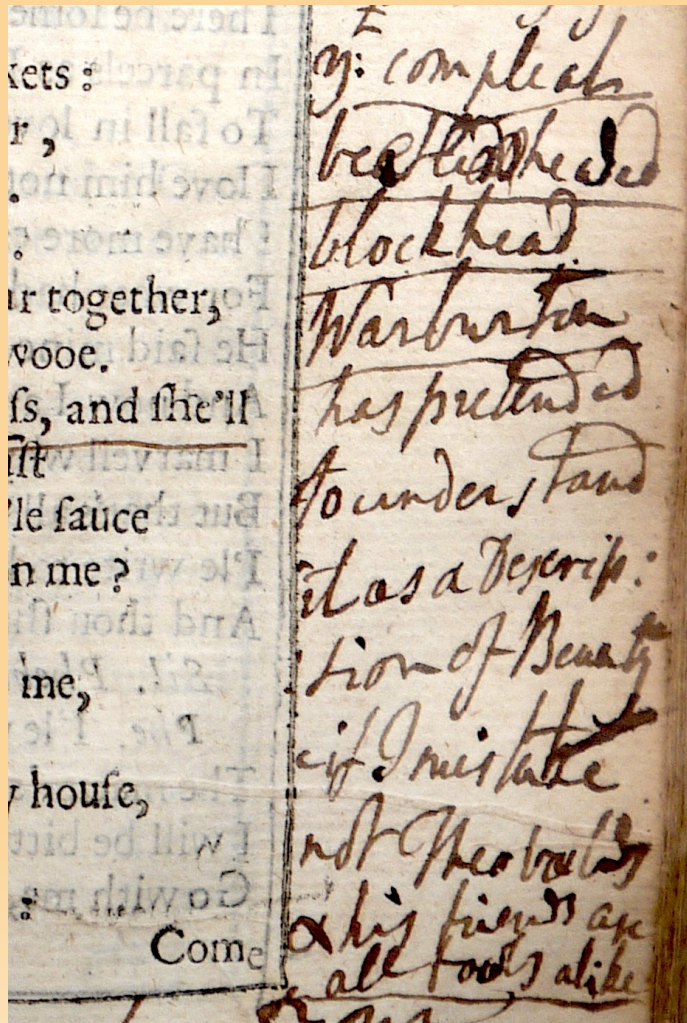 kets:
r,
.
:
ur together,
vooe.
ſs, and ſhe'll
iſt
'le ſauce
n me?
me,
y houſe,
:
Come
y: compleat
beetleheaded
blockhead
Warburton
has pretended
to understand
it as a Descrip:
tion of Beauty
if I mistake
not Theobalds
& his friends are
all fools alike